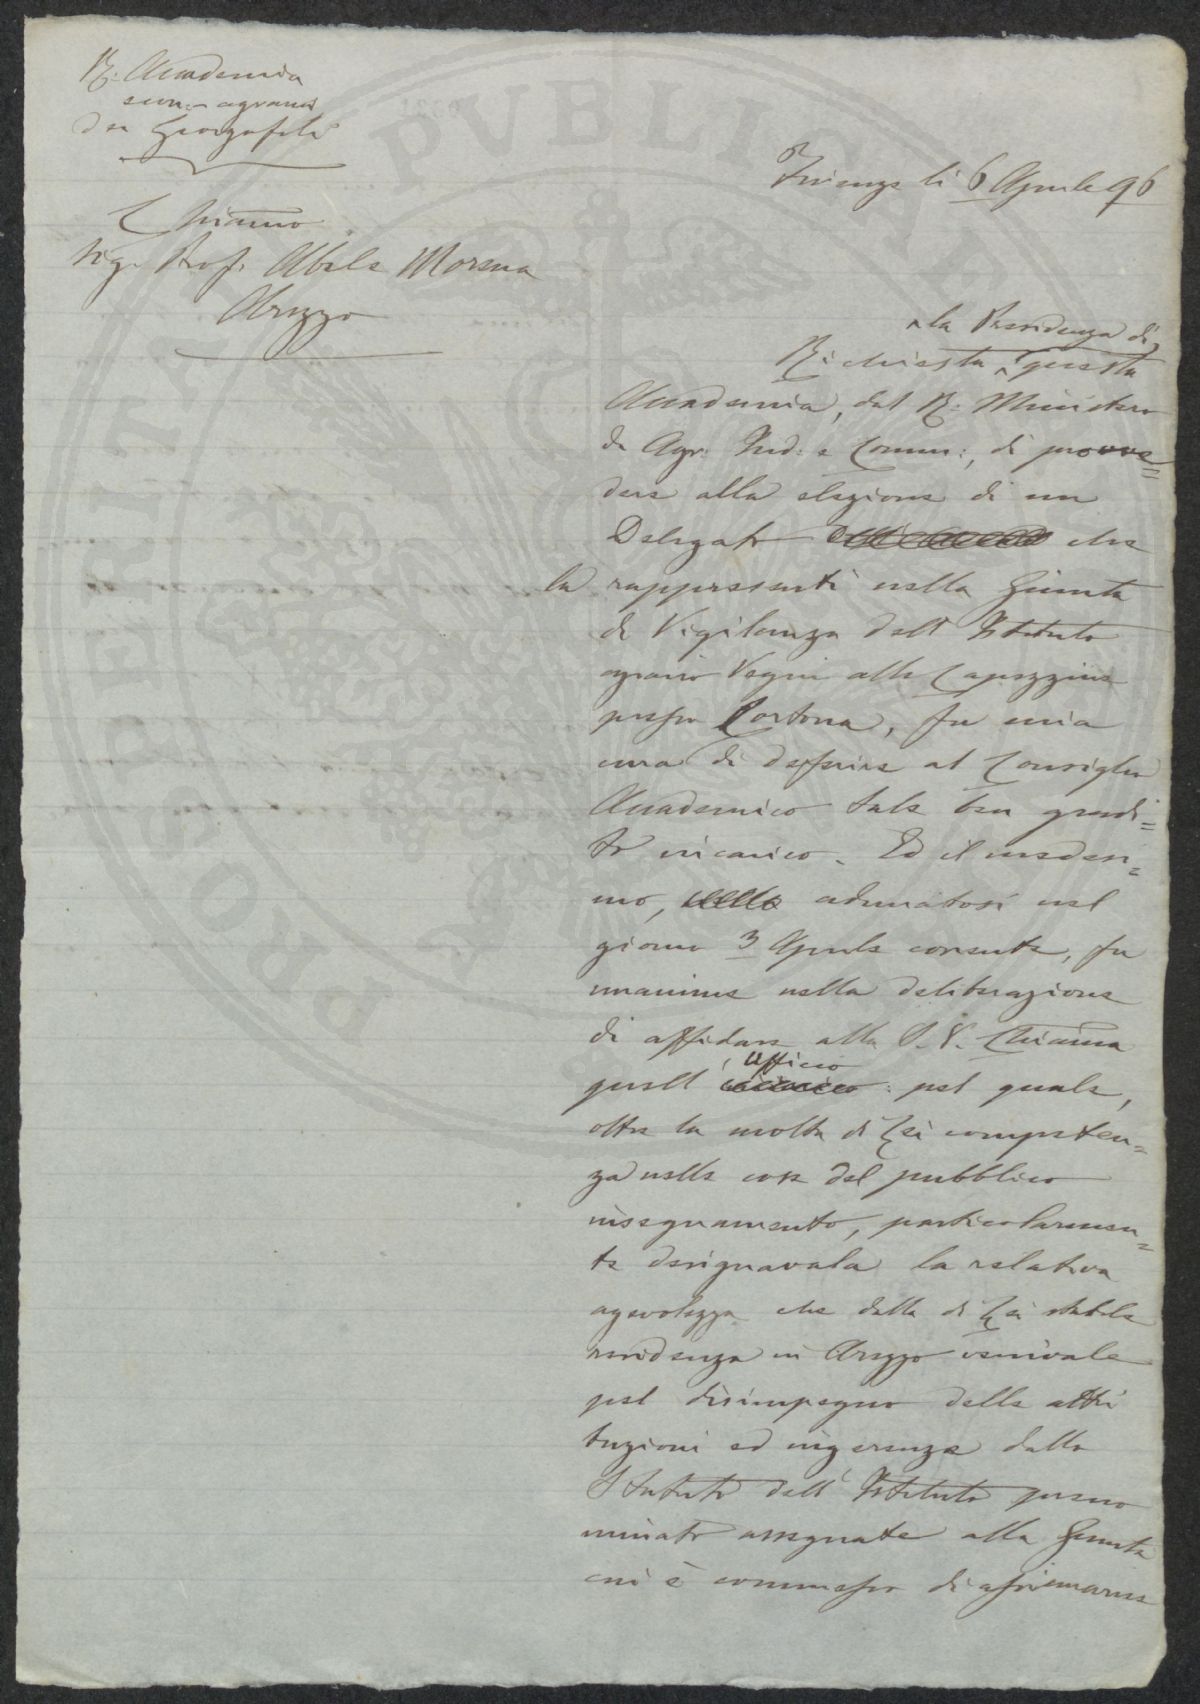 R. Accademia
econ. agraria
dei Georgofili
Firenze li 6 Aprile 96
Chiarmo
Sig. Prof. Abele Morena
Arezzo
la Presidenza di
Richiesta questa
Accademia, dal R. Ministero
di Agr. Ind. e Comm:, di provve=
dere alla elezione di un
Delegato che
la rappresenti nella Giunta
di Vigilanza dell'Istituto
agrario Vegni alle Capezzine
presso Cortona, fu mia
cura di deferire al Consiglio
Accademico tale ben gradi=
to incarico. Ed il medesi=
mo, adunatosi nel
giorno 3 Aprile corrente, fu
unanime nella deliberazione
di affidare alla S. V. Chiarma
Ufficio
quell' : pel quale,
oltre la molta di Lei competen=
za nelle cose del pubblico
insegnamento, particolarmen=
te designavala la relativa
agevolezza che dalla di Lei stabile
residenza in Arezzo venivale
pel disimpegno delle attri
buzioni ed ingerenze dallo
Statuto dell'Istituto preno
minato assegnate alla Giunta
cui è commesso di
PUBLICA
PROSPERITÀ